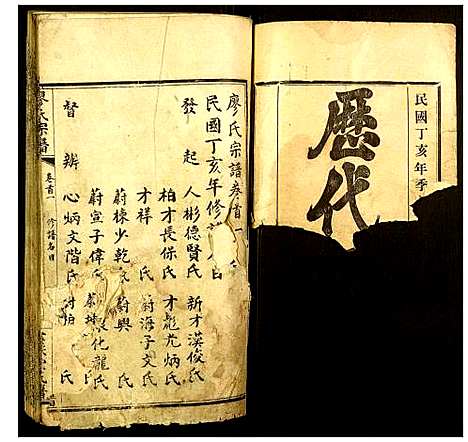 民國丁亥年季
歷代
廖氏宗譜卷首一
民國丁亥年修
發起 人彬德賢氏 新才漢俊氏
柏才長保氏 才彪尤炳氏
才祥 氏 蔚海子文氏
蔚棟少乾 蔚興 氏
蔚宣子偉氏 化龍氏
督辦 心炳文階氏 氏
廖氏宗譜
卷首一 修譜名目